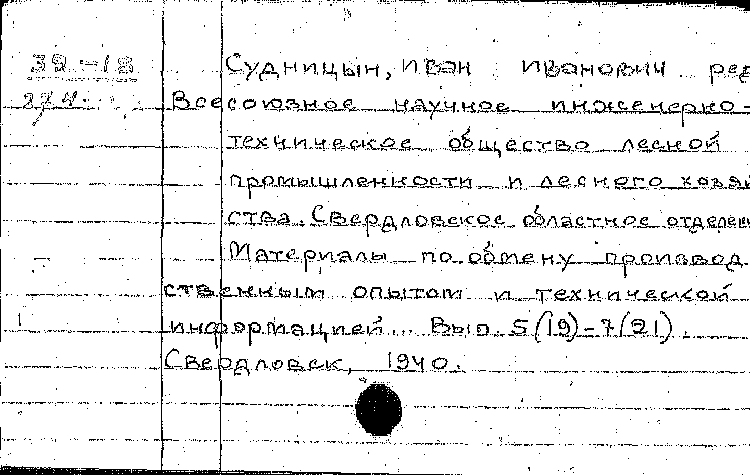 39-18 Судницын, Иван Иванович ред
274 Всесоюзное научное инженерно-
техническое общество лесной
промышленности и лесного хозяй
ства. Свердловское областное отделен
Материалы по обмену производ
ственным опытом и технической
информацией... Вып. 5(19)-7(21).
Свердловск, 1940.